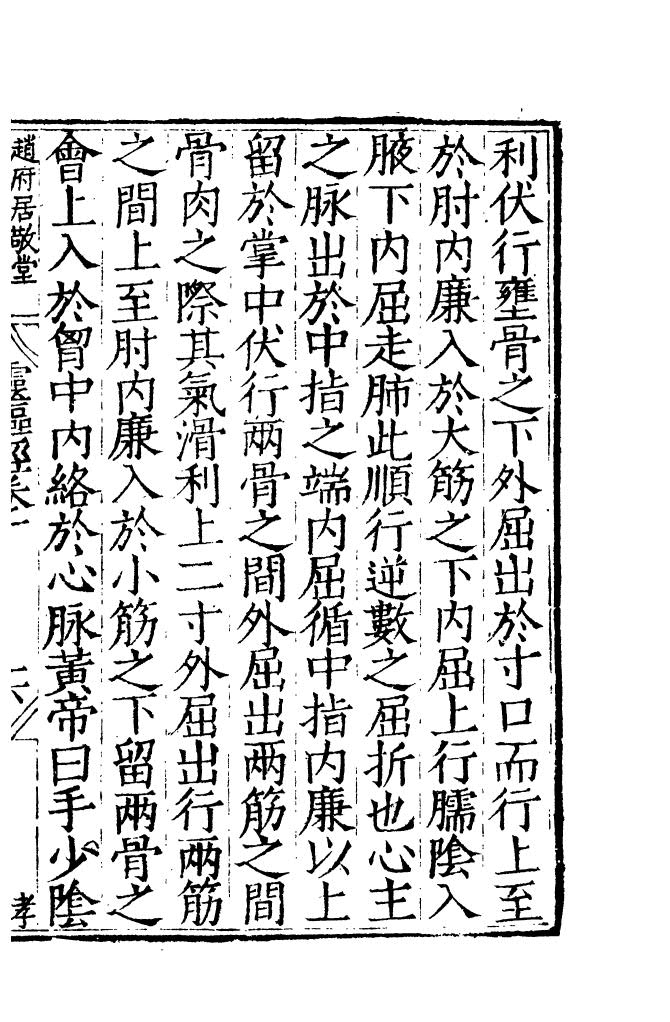 利伏行壅骨之下外屈出於寸口而行上至
於肘内廉入於大筋之下内屈上行臑陰入
腋下内屈走肺此順行逆數之屈折也心主
之脉出於中指之端内屈循中指内廉以上
留於掌中伏行兩骨之間外屈出兩筋之間
骨肉之際其氣滑利上二寸外屈出行兩筋
之間上至肘内廉入於小筋之下留兩骨之
會上入於胷中内絡於心脉黃帝曰手少陰
趙府居敬堂
孝